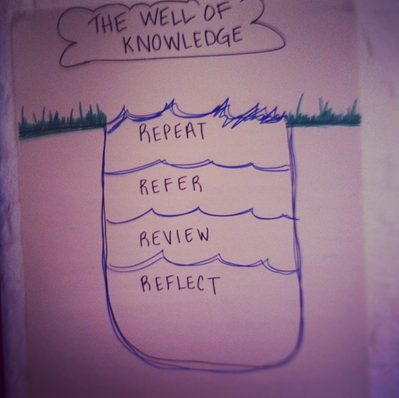 THE WELL OF
KNOWLEDGE
REPEAT
REFER
REVIEW
REFLECT